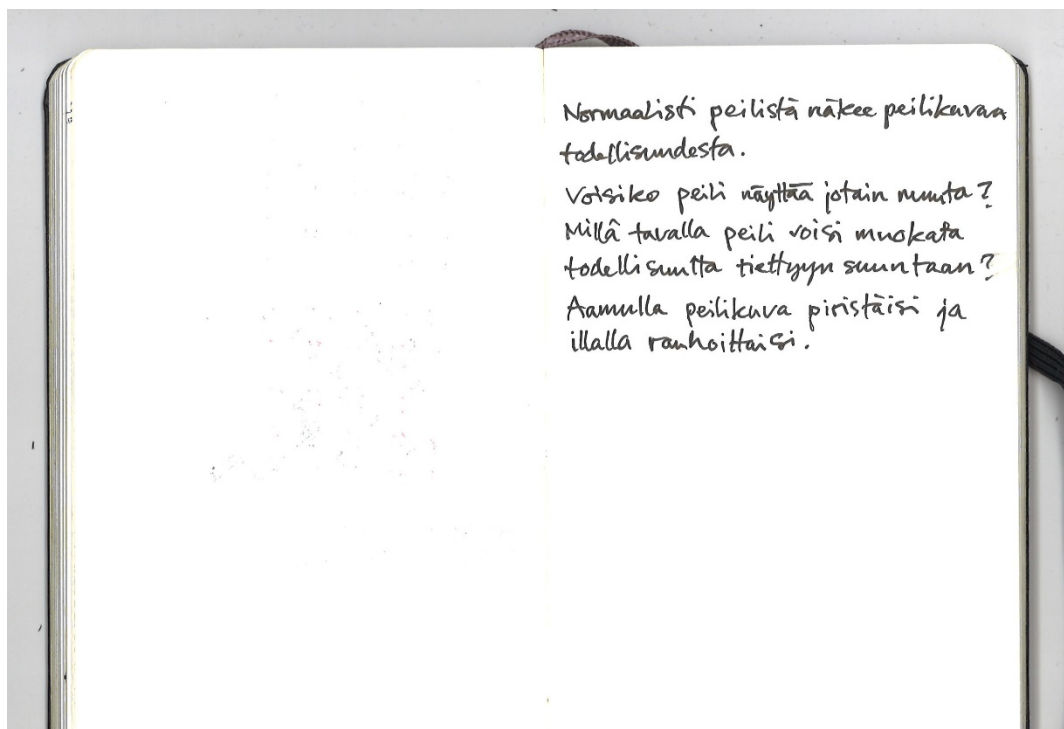 Normaalisti peilistä näkee peilikuvan
todellisuudesta.
Voisiko peili näyttää jotain muuta?
Millä tavalla peili voisi muokata
todellisuutta tiettyyn suuntaan?
Aamulla peilikuva piristäisi ja
illalla rauhoittaisi.